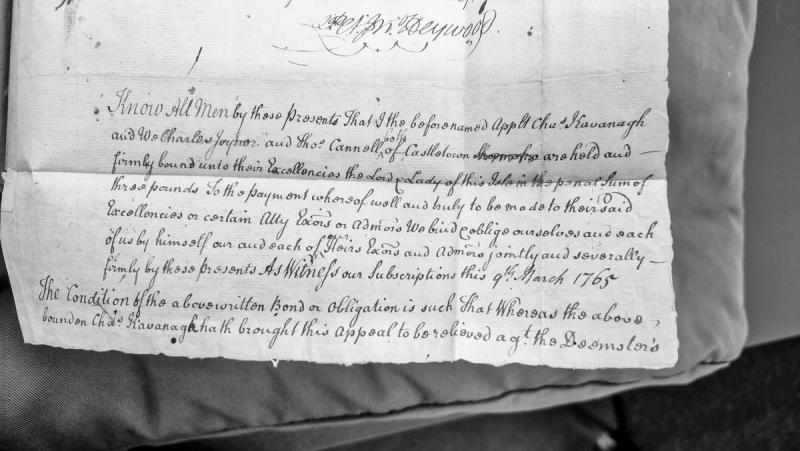 Heywood.
Know All Men by these Presents That I the beforenamed Applt Chas. Kavanagh
and We Charles Joyner and Thos. Cannell both of Castletown are held and
firmly bound unto their Excellencies the Lord & Lady of this Isle in the penal Sum of
three pounds To the payment whereof well and truly to be made to their said
Excellencies or certain Atty Exōrs or Admōrs We bind & oblige ourselves and each
of us by himself our and each of or Heirs Exōrs and Admōrs jointly and severally
firmly by these presents As Witness our Subscriptions this 9th. March 1765
The Condition of the abovewritten Bond or Obligation is such That Whereas the above
bounden Chas. Kavanagh hath brought this Appeal to be relieved agt. the Deemster's